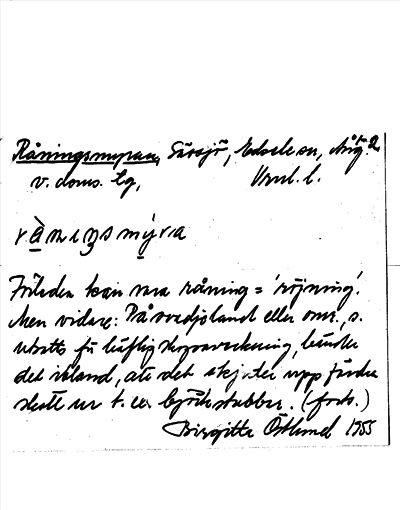 Råningsmyran, Sörsjö, Edsele sn, Ång.
v. doms. lg, Västl. l.
råningsmýra
Förleden kan vara råning = 'röjning'.
Men vidare: På svedjeland eller omr., s.
utsatts för kraftig skogsavverkning, händer
det ibland, att det skjuter upp färska
skott ur t. ex. björkstubbar. (forts.)
Birgitta Östlund 1955